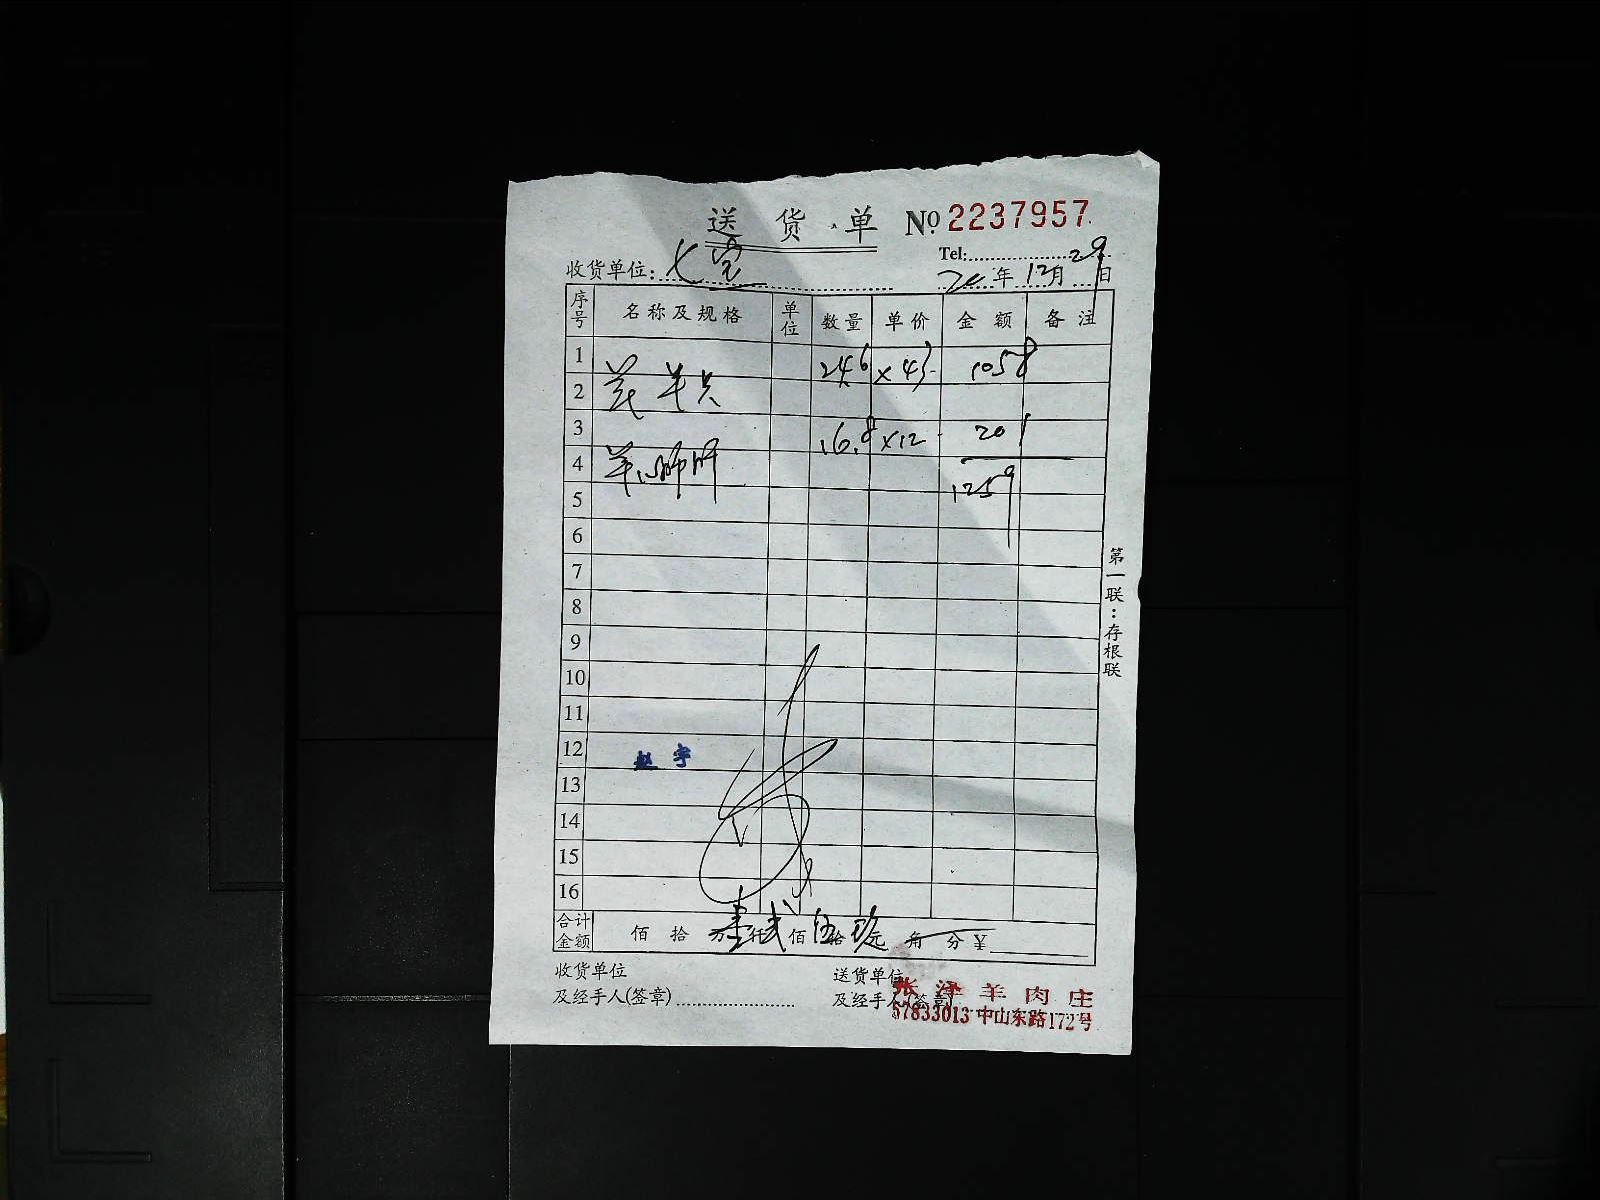 送货单 No 2237957
Tel:
收货单位: 七宝 20年12月29日
序号 名称及规格 单位 数量 单价 金额 备注
1 24.6 ×43 1058
2 羊
3 16.8 ×12 201
4 羊心肺肝
1259
5
6
7
8
9
10
11
12 赵宇
13
14
15
16
合计金额 佰拾万壹仟贰佰伍拾玖元角分¥
收货单位
及经手人(签章)
送货单位
及经手人(签章)
张泽羊肉庄
57833013 中山东路172号
第一联:存根联